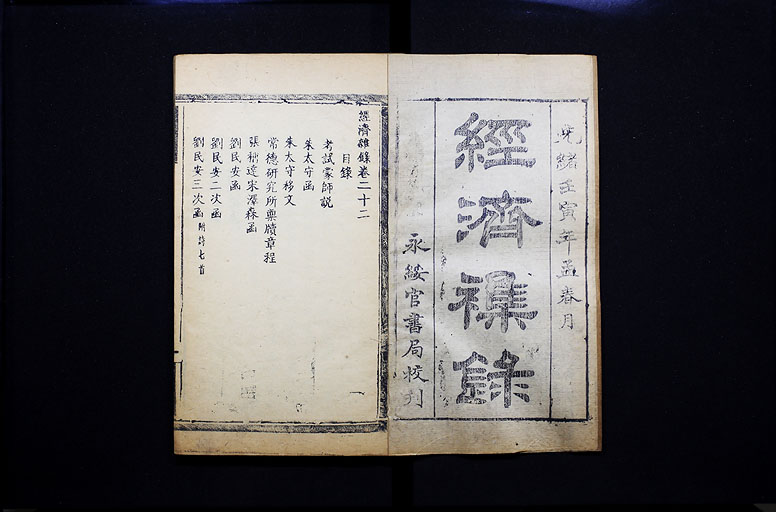 光緒壬寅年孟春月
經濟襍錄
永綏官書局校刊
經濟雜錄卷二十二
目錄
考試蒙師說
朱太守函
朱太守移文
常德研究所稟牘章程
張耕遠宋澤森函
劉民安函
劉民安二次函
劉民安三次函 附詩七首
一